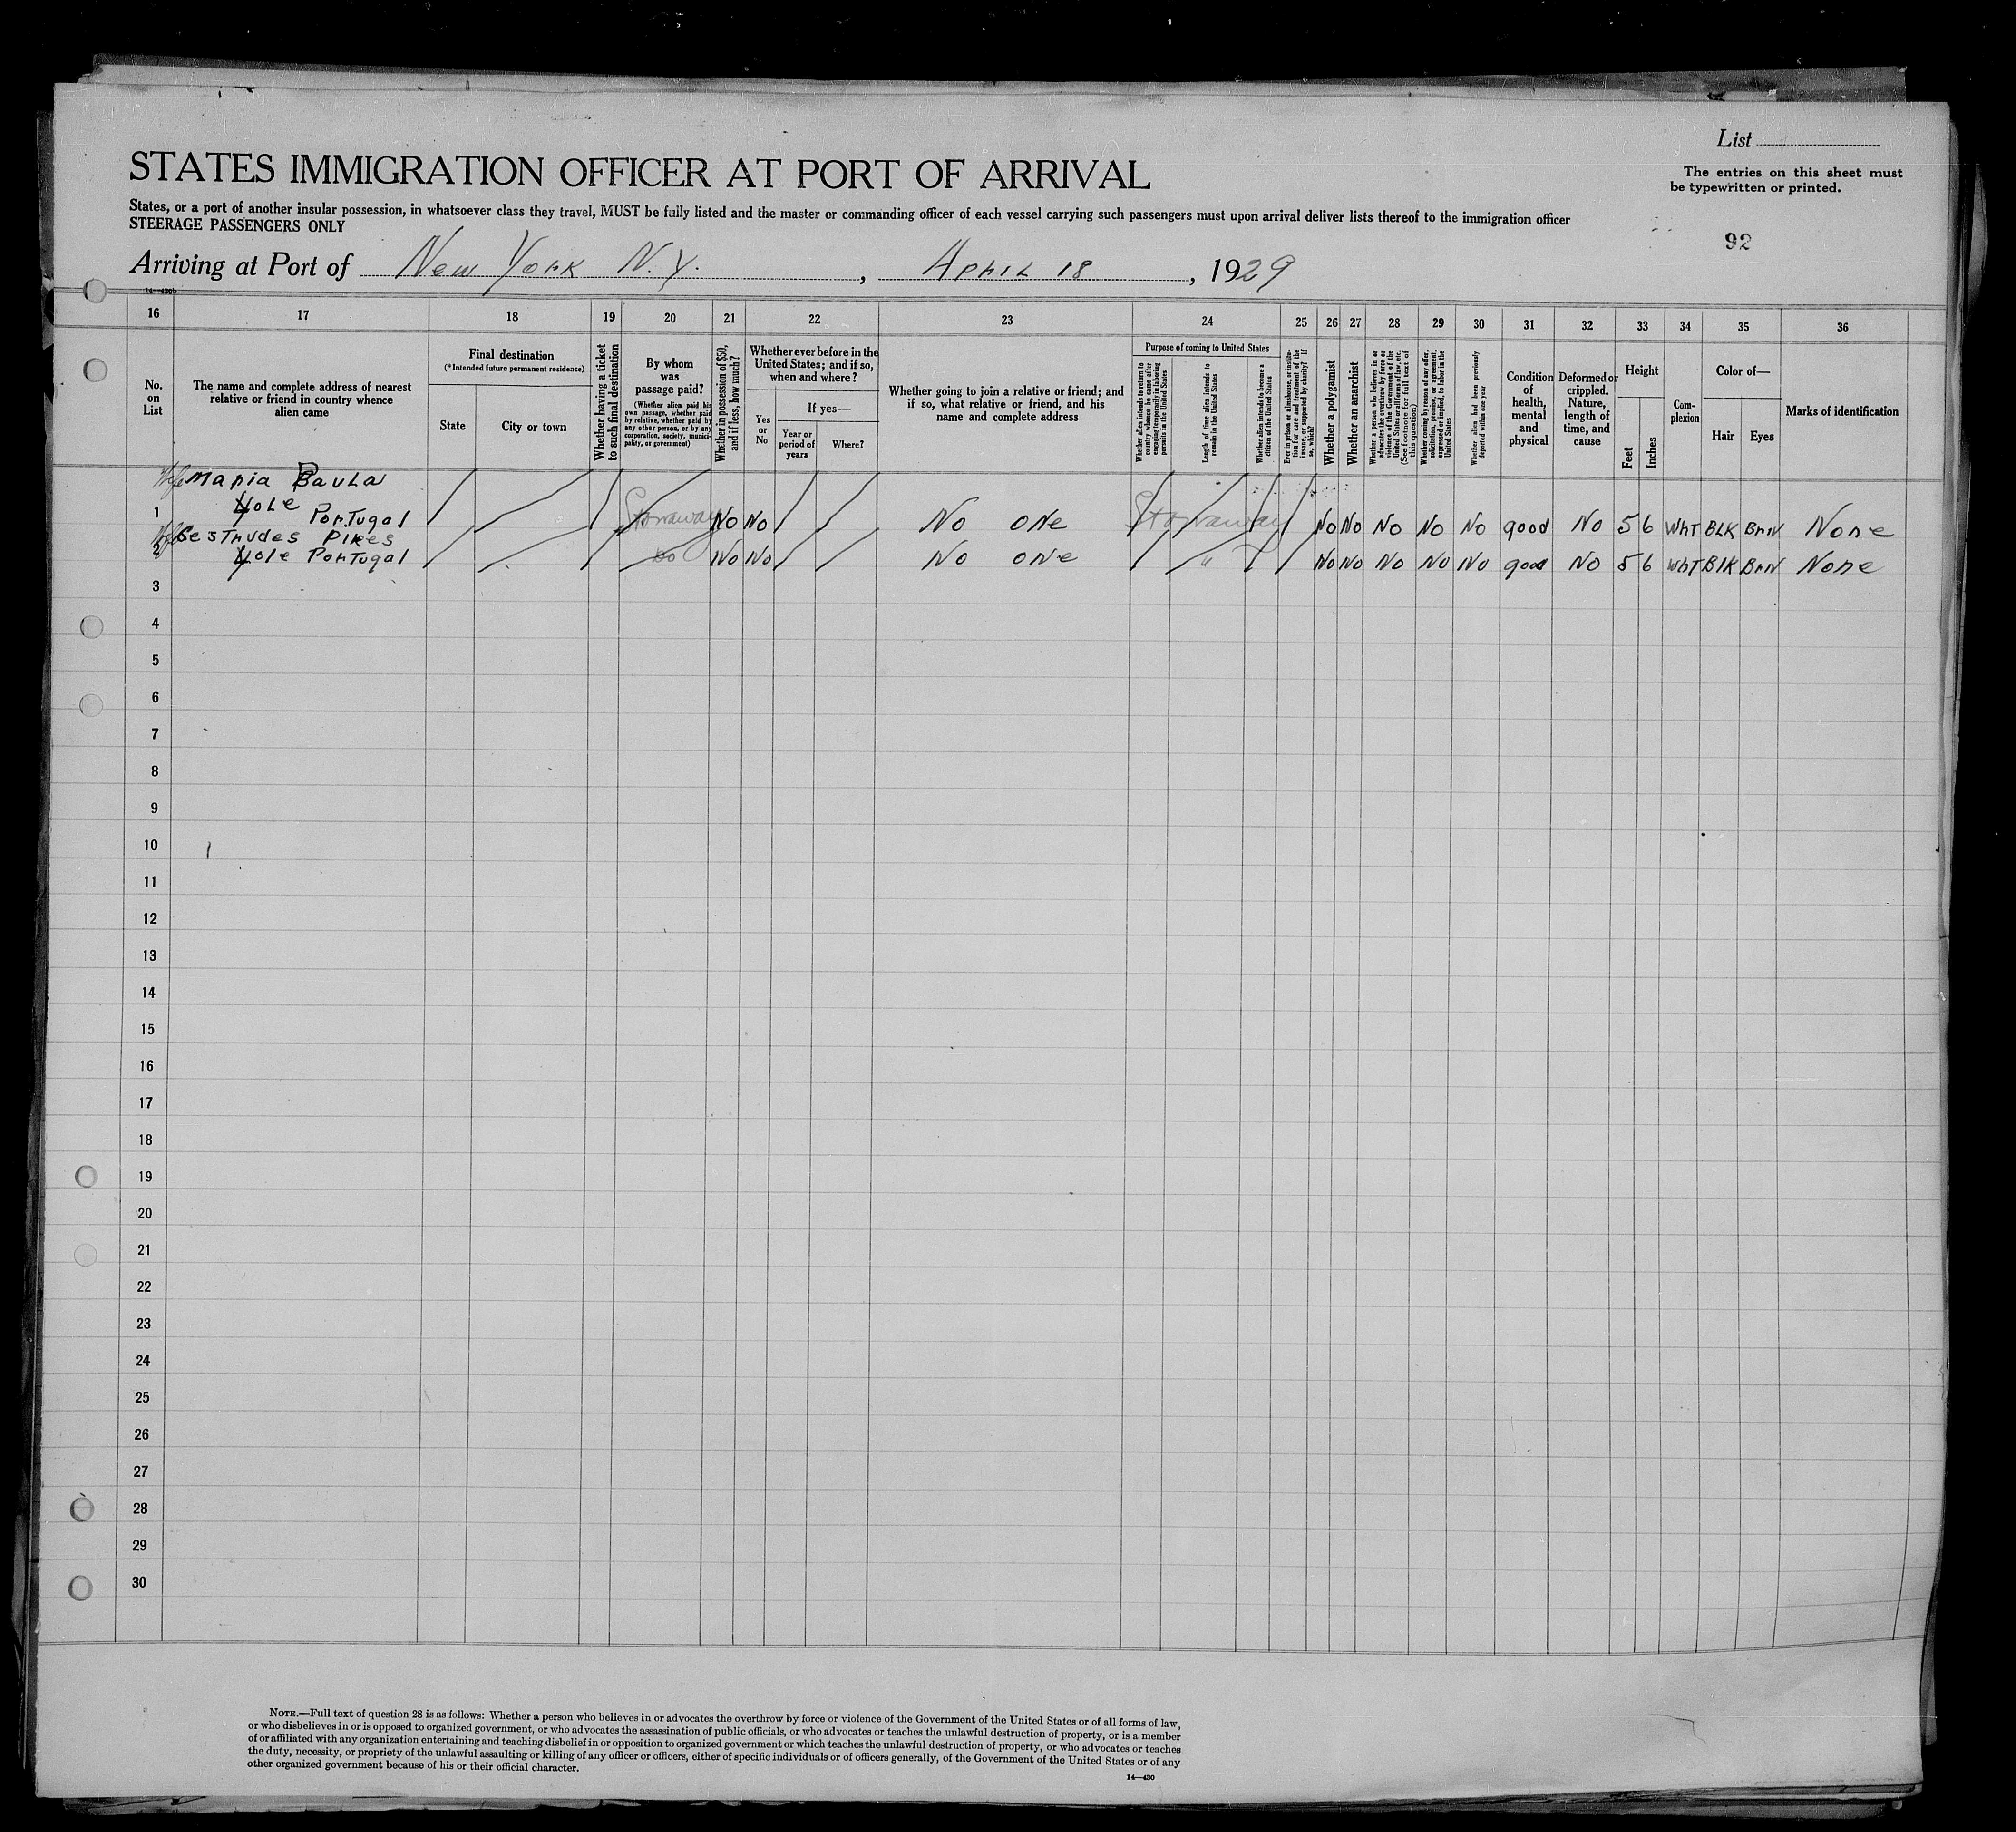 List
The entries on this sheet must
be typewritten or printed.
STATES IMMIGRATION OFFICER AT PORT OF ARRIVAL
States, or a port of another insular possession, in whatsoever class they travel, MUST be fully listed and the master or commanding officer of each vessel carrying such passengers must upon arrival deliver lists thereof to the immigration officer
STEERAGE PASSENGERS ONLY
92
Arriving at Port of New York N.Y. , April 18 , 1929
14—430b
16 17 18 19 20 21 22 23 24 25 26 27 28 29 30 31 32 33 34 35 36
No.
on
List
The name and complete address of nearest
relative or friend in country whence
alien came
Final destination
(*Intended future permanent residence)
State
City or town
Whether having a ticket
to such final destination
By whom
was
passage paid?
(Whether alien paid his
own passage, whether paid
by relative, whether paid by
any other person, or by any
corporation, society, munici-
pality, or government)
Whether in possession of $50,
and if less, how much?
Whether ever before in the
United States; and if so,
when and where?
Yes
or
No
If yes—
Year or
period of
years
Where?
Whether going to join a relative or friend; and
if so, what relative or friend, and his
name and complete address
Purpose of coming to United States
Whether alien intends to return to
country whence he came after
engaging temporarily in laboring
pursuits in the United States
Length of time alien intends to
remain in the United States
Whether alien intends to become a
citizen of the United States
Ever in prison or almshouse, or institu-
tion for care and treatment of the
insane, or supported by charity? If
so, which?
Whether a polygamist
Whether an anarchist
Whether a person who believes in or
advocates the overthrow by force or
violence of the Government of the
United States or all forms of law, etc.
(See footnote for full text of
this question)
Whether coming by reason of any offer,
solicitation, promise, or agreement,
expressed or implied, to labor in the
United States
Whether alien had been previously
deported within one year
Condition
of
health,
mental
and
physical
Deformed or
crippled.
Nature,
length of
time, and
cause
Height
Feet
Inches
Com-
plexion
Color of—
Hair
Eyes
Marks of identification
Wife Maria Baula
1 Yole Portugal Stowaway No No No one Stowaway No No No No No good No 5 6 WhT BLK Brn None
Wife Gestrudes Pires
2 Yole Portugal do No No No one " No No No No No good No 5 6 WhT Blk Brn None
3
4
5
6
7
8
9
10
11
12
13
14
15
16
17
18
19
20
21
22
23
24
25
26
27
28
29
30
NOTE.—Full text of question 28 is as follows: Whether a person who believes in or advocates the overthrow by force or violence of the Government of the United States or of all forms of law,
or who disbelieves in or is opposed to organized government, or who advocates the assassination of public officials, or who advocates or teaches the unlawful destruction of property, or is a member
of or affiliated with any organization entertaining and teaching disbelief in or opposition to organized government or which teaches the unlawful destruction of property, or who advocates or teaches
the duty, necessity, or propriety of the unlawful assaulting or killing of any officer or officers, either of specific individuals or of officers generally, of the Government of the United States or of any
other organized government because of his or their official character.
14—430